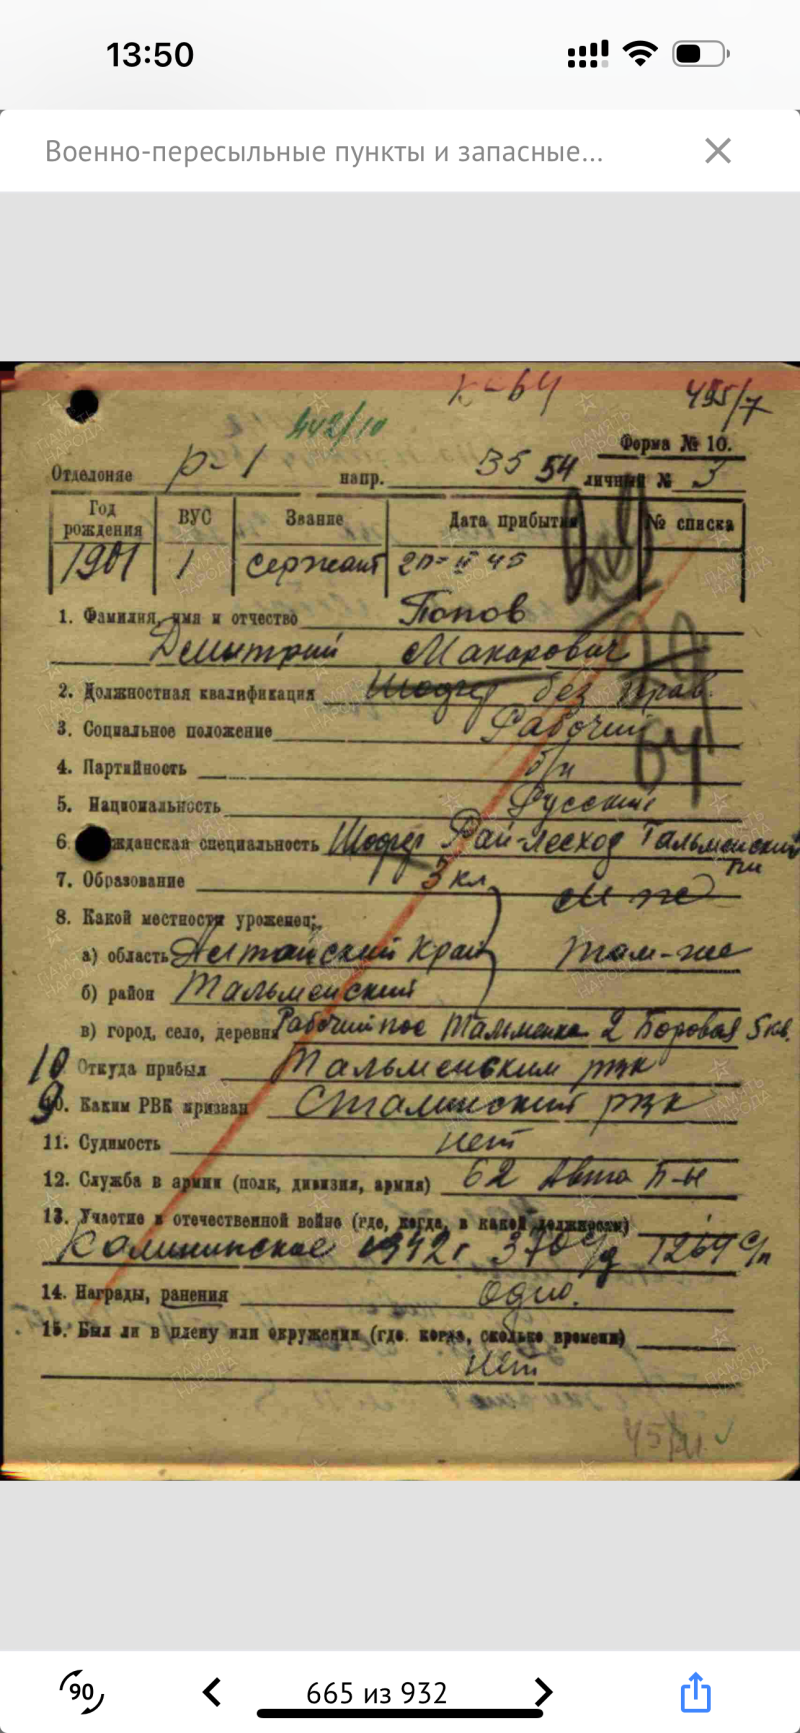 13:50
Военно-пересыльные пункты и запасные...
К-64 495/7
442/10
Форма № 10.
Отделение Р-1 напр. 3554 личный № 3
Год рождения ВУС Звание Дата прибытия № списка
1901 1 сержант
1. Фамилия, имя и отчество Попов
Дмитрий Макарович
2. Должностная квалификация Шофер без прав.
3. Социальное положение Рабочий
64
4. Партийность б/п
5. Национальность Русский
6. жданская специальность Шофер Рай-лесход Тальменский
7. Образование 3 кл
8. Какой местности уроженец:
а) область Алтайский Край там-же
б) район Тальменский
в) город, село, деревня Рабочий пос Тальменка 2 Боровая 5 кв.
10 Откуда прибыл Тальменским рвк
9 10. Каким РВК призван Сталинский рвк
11. Судимость нет
12. Служба в армии (полк, дивизия, армия) 62 Авто П-н
13. Участие в отечественной войне (где, когда, в какой должности)
Калининское 1942 г 370 с/д 1269 с/п
14. Награды, ранения Одно.
15. Был ли в плену или окружении (где, когда, сколько времени)
Нет
90
665 из 932